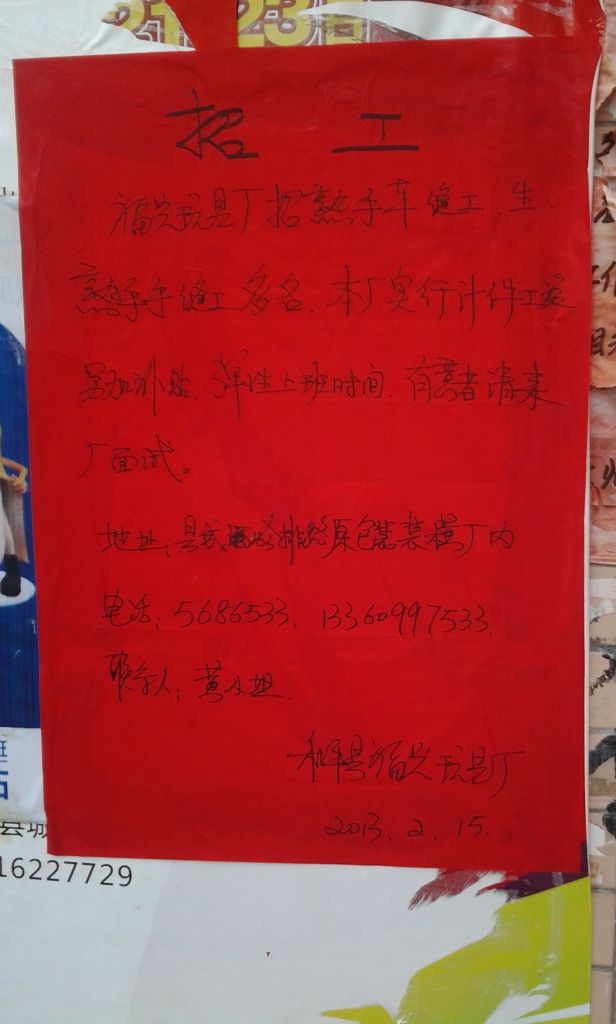 21 23日
招 工
福兴玩具厂招熟手车缝工、生、
熟手手缝工多名、本厂实行计件工资
另加补贴、弹性上班时间、有意者请来
厂面试。
地址:县城 排 原包装 厂内
电话:5686533、13360997533
联系人:黄小姐
和平县福兴玩具厂
2013、2、15.
16227729